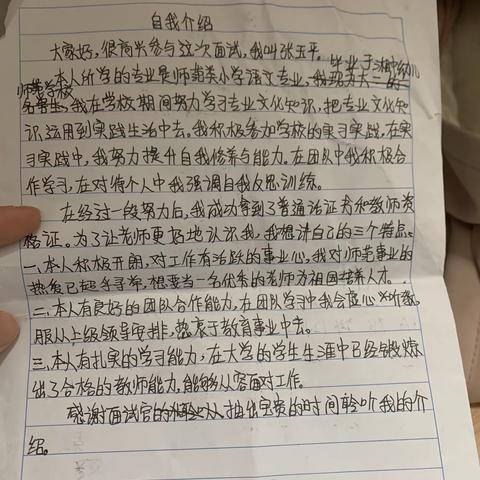 自我介绍
大家好,很高兴参与这次面试,我叫张玉平。
毕业于湘中幼儿
本人所学的专业是师范类小学语文专业,
师范学校
我在学校期间努力学习专业文化知识,把专业文化知
识运用到实践生活中去。我积极参加学校的实习实践,在实
习实践中,我努力提升自我修养与能力。在团队中我积极合
作学习,在对待个人中我强调自我反思训练。
在经过一段努力后,我成功拿到了普通话证书和教师资
格证。为了让老师更好地认识我,我想讲自己的三个特点。
一、本人积极开朗,对工作有活跃的事业心,我对师范事业的
热爱已 想要当一名优秀的老师为祖国培养人才。
二、本人有良好的团队合作能力,在团队学习中我会虚心
服从上级领导安排,热衷于教育事业中去。
三、本人有扎实的学习能力,在大学的学生生涯中已经锻炼
出了合格的教师能力,能够从容面对工作。
感谢面试官的 抽出宝贵的时间聆听我的介
绍。